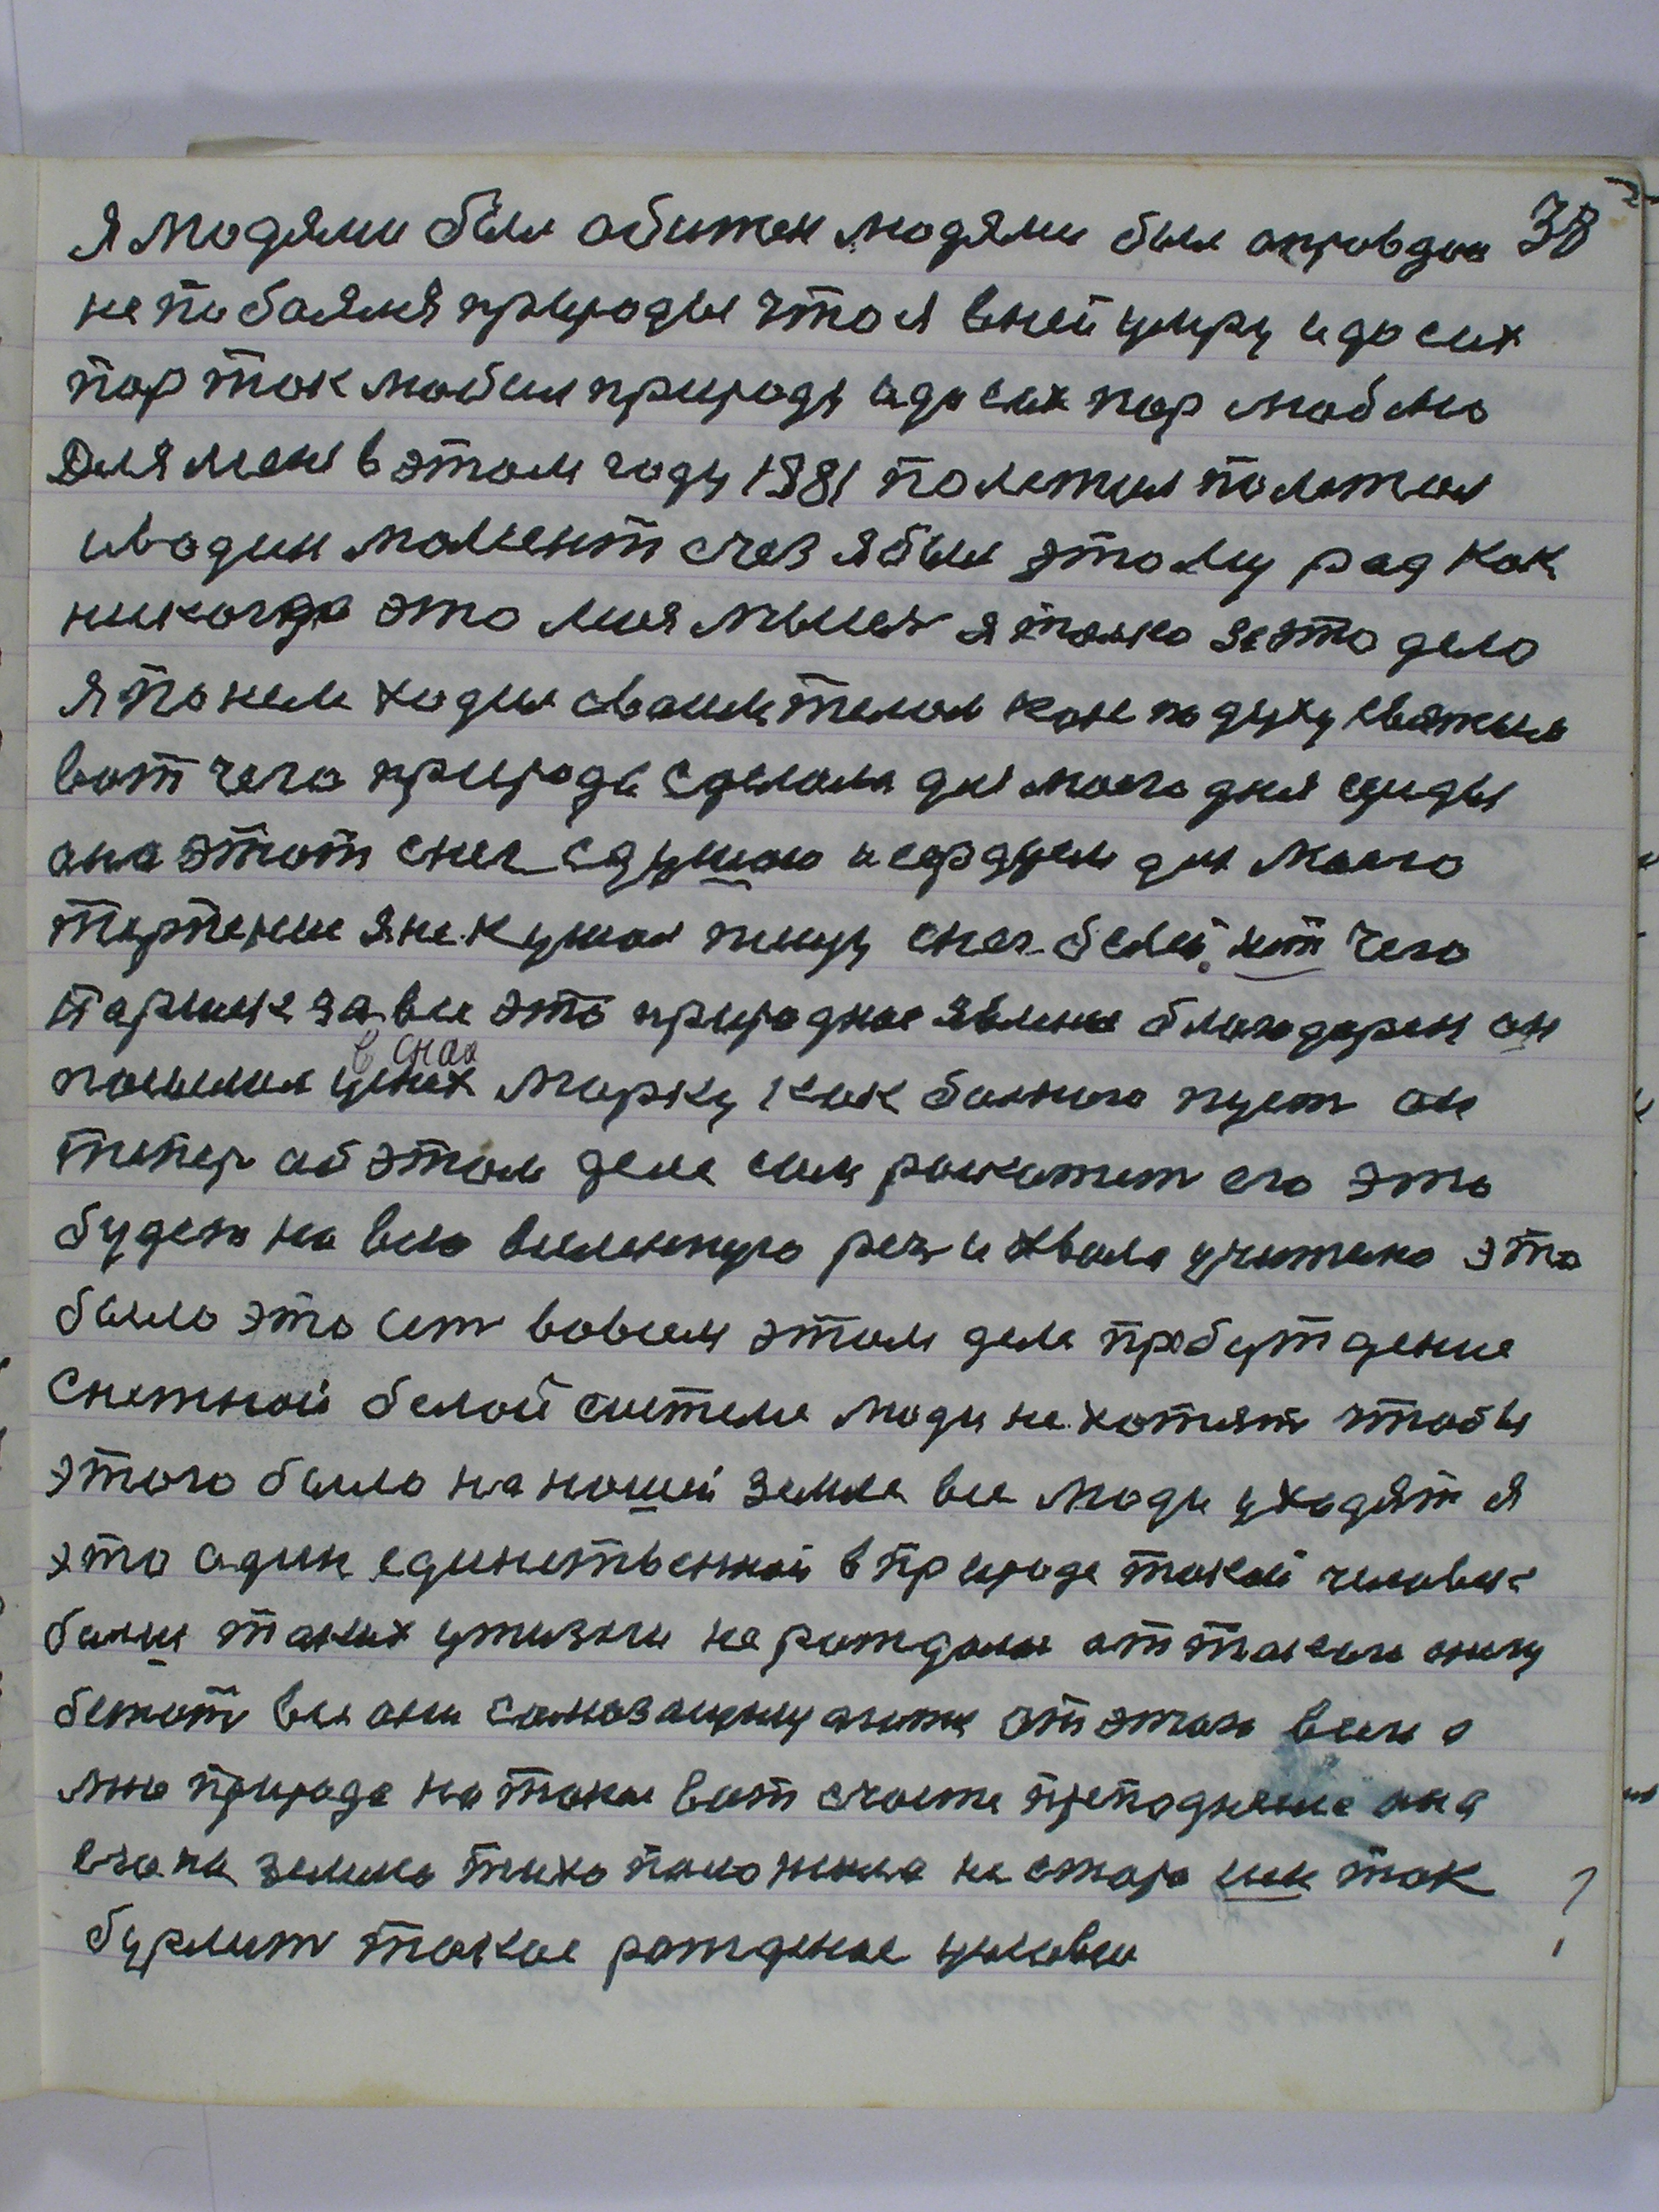 я людями был обижен людями был оправдан 38
не побоялся природы что я вней умру идо сих
пор так любил природу идо сих пор люблю
Для меня вэтом году 1981 полетел полетел
иводин момент снег я был этому рад как
никогда это моя мысль я только за это дело
я по нем ходил своим телом как по духу святым
вот чего природа сделала для моего дня сюды
она этот снег сдушою и сордцем для моего
терпение я не кушал пищу снег белый хот чего
паршек за все это природное явление благодарен он
в снах
посылал уснех Марку как бального пуст он
типер об этом деле сам роскажит его это
будет на всю вселенную реч и хвала учителю это
было это ест вовсем этом деле пробуждение
снежной белой системе люди не хотият чтобы
этого было на нашей земле все люди уходят я
это один единственной вприроде такой человек
больш таких ужизни не рождали от такого снегу
бежат все они самозащищаются от этого всего а
мне природа на такое вот счастье преподнесла она
его на землю тихо положила не стара или так
бурлит такое рождение условие